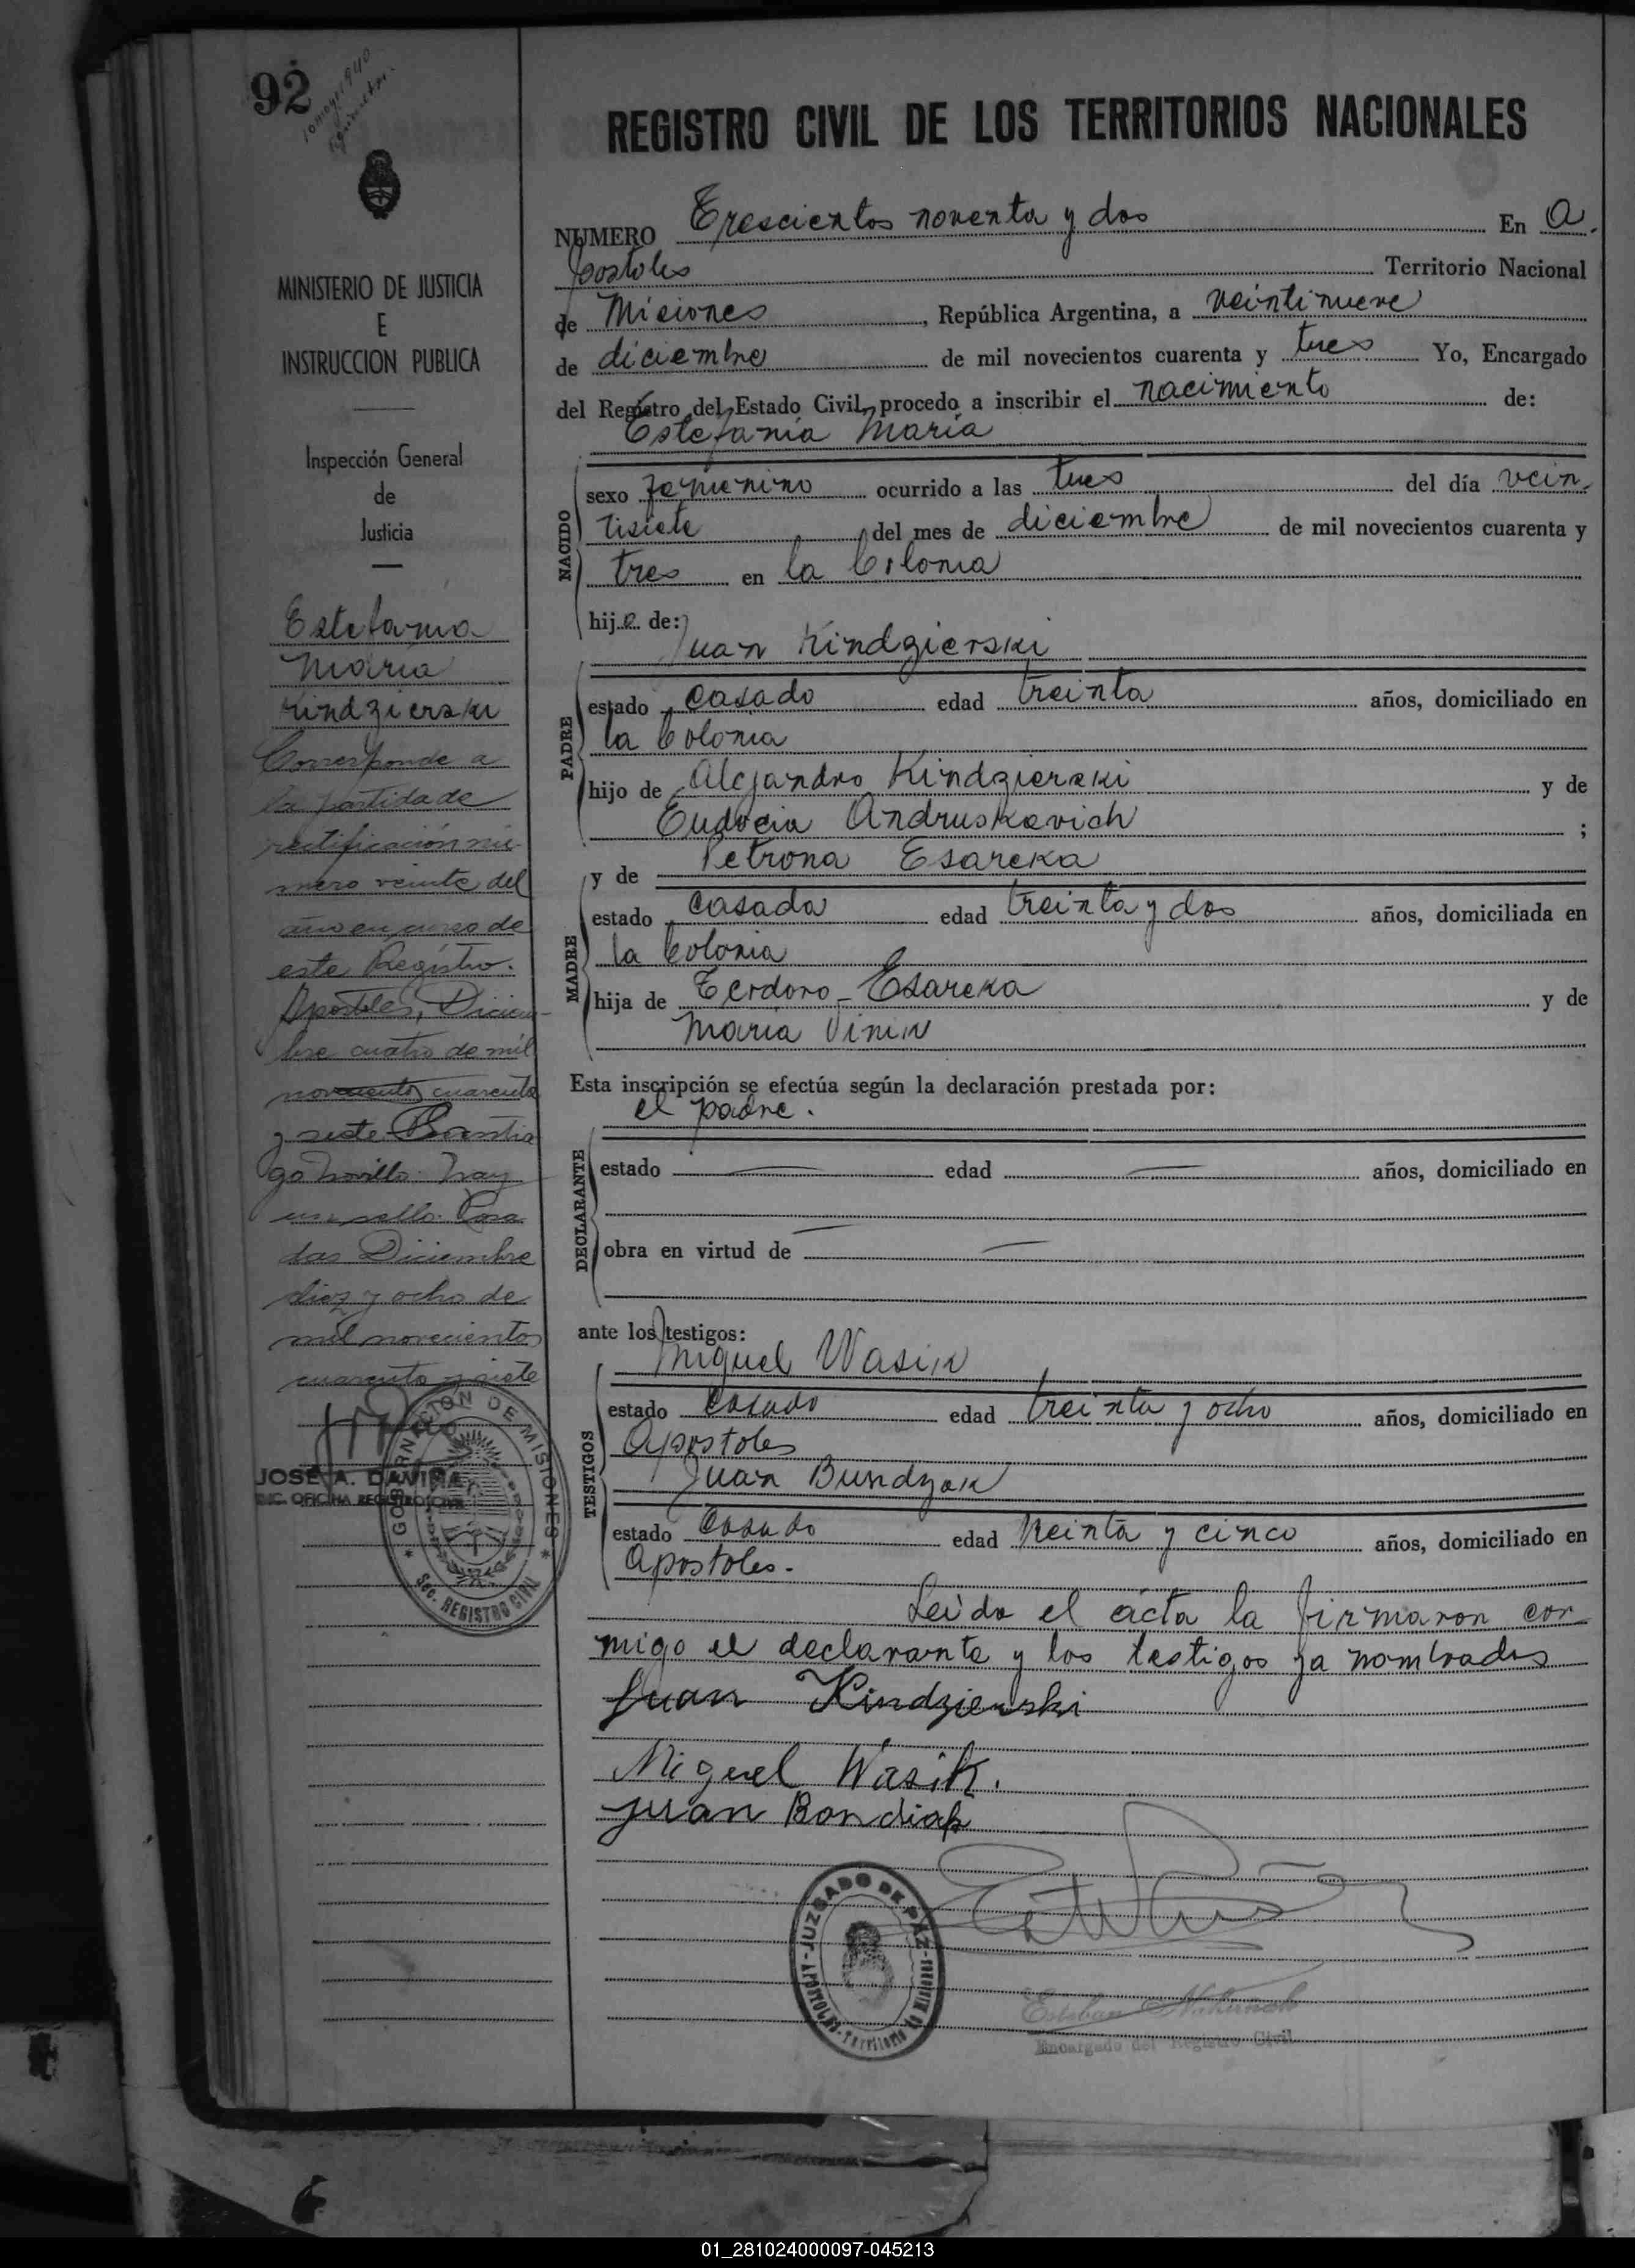 92
10 mayo 1940
MINISTERIO DE JUSTICIA
E
INSTRUCCION PUBLICA
Inspección General
de
Justicia
Estefania
Maria
Kindzierski
Corresponde a
la partida de
rectificación nú-
mero veinte del
año en curso de
este Registro.
Apostoles, Diciem-
bre cuatro de mil
novecientos cuarenta
y siete Santia
go Novillo. Hay
un sello. Posa
das Diciembre
diez y ocho de
mil novecientos
cuarenta y siete
GOBERNACION DE MISIONES
Sec. REGISTRO CIVIL
JOSÉ A.
ENC. OFICINA REGISTRO CIVIL
REGISTRO CIVIL DE LOS TERRITORIOS NACIONALES
NUMERO Trescientos noventa y dos En A.
postoles Territorio Nacional
de Misiones, República Argentina, a veintinueve
de diciembre de mil novecientos cuarenta y tres Yo, Encargado
del Registro del Estado Civil, procedo a inscribir el nacimiento de:
Estefania Maria
NACIDO
sexo femenino ocurrido a las tres del día vein-
tisiete del mes de diciembre de mil novecientos cuarenta y
tres en la Colonia
hija de:
Juan Kindzierski
PADRE
estado casado edad treinta años, domiciliado en
la Colonia
hijo de Alejandro Kindzierski y de
Eudocia Andruskevich ;
y de Petrona Esareka
MADRE
estado casada edad treinta y dos años, domiciliada en
la Colonia
hija de Teodoro Esareka y de
Maria
Esta inscripción se efectúa según la declaración prestada por:
el padre.
DECLARANTE
estado — edad — años, domiciliado en
obra en virtud de —
ante los testigos:
Miguel Wasik
TESTIGOS
estado casado edad treinta y ocho años, domiciliado en
Apostoles
Juan Bundzak
estado casado edad treinta y cinco años, domiciliado en
Apostoles.
Leida el acta la firmaron con
migo el declarante y los testigos ya nombrados
Juan Kindzierski
Miguel Wasik.
Juan Bondiak
JUZGADO DE PAZ - APOSTOLES - Territorio de Misiones
Esteban
Encargado del Registro Civil
01_281024000097-045213